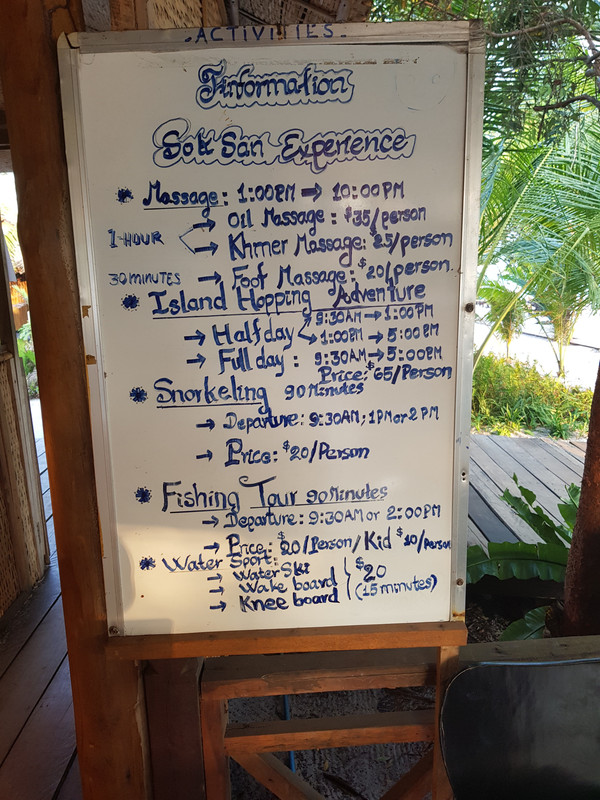 -ACTIVITIES-
Information
Sok San Experience
* Massage: 1:00PM → 10:00PM
→ Oil Massage: $35/person
1-HOUR
→ Khmer Massage: $25/person
30 MINUTES → Foot Massage: $20/person.
* Island Hopping Adventure
→ Half day 9:30AM → 1:00PM
1:00PM → 5:00PM
→ Full day: 9:30AM → 5:00PM
Price: $65/Person
* Snorkeling 90 Minutes
→ Departure: 9:30AM; 1PM or 2 PM
→ Price: $20/Person
* Fishing Tour 90 Minutes
→ Departure: 9:30AM or 2:00PM
→ Price: $20/Person/Kid $10/Person
* Water Sport:
→ Water Ski
→ Wake board $20
→ Knee board (15 minutes)